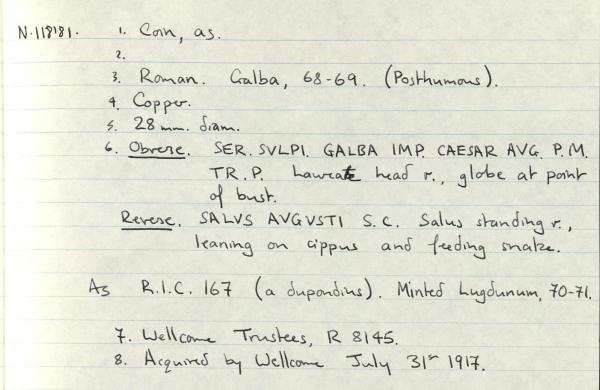 N.118'81. 1. Coin, as.
2.
3. Roman. Galba, 68-69. (Posthumous).
4. Copper.
5. 28 mm. diam.
6. Obverse. SER. SVLPI. GALBA IMP. CAESAR AVG. P.M.
TR.P. Laureate head r., globe at point
of bust.
Reverse. SALVS AVGVSTI S.C. Salus standing r.,
leaning on cippus and feeding snake.
As R.I.C. 167 (a dupondius). Minted Lugdunum, 70-71.
7. Wellcome Trustees, R 8145.
8. Acquired by Wellcome July 31st 1917.